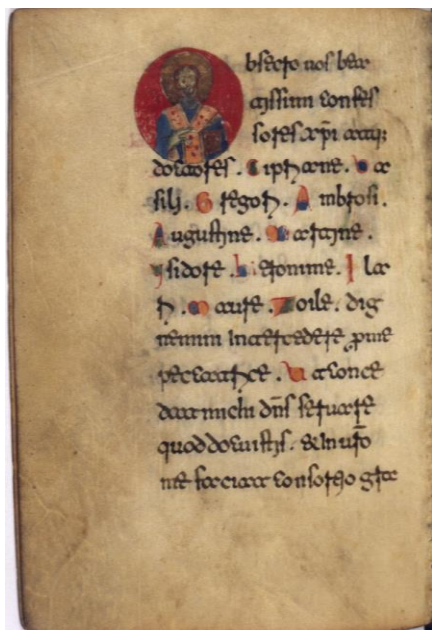 Obsecro uos bea
tissimi confes
sores xpi atq;
doctores. Cipriane. Ba
silij. Gregori. Ambrosi.
Augustine. Martine.
Ysidore. Hieronime. Ila
ri. Maure. Zoile. dig
nemini intercedere p me
peccatrice. Ut conce
dat michi dns seruare
quod docuistis. & in uro
me faciat consortio